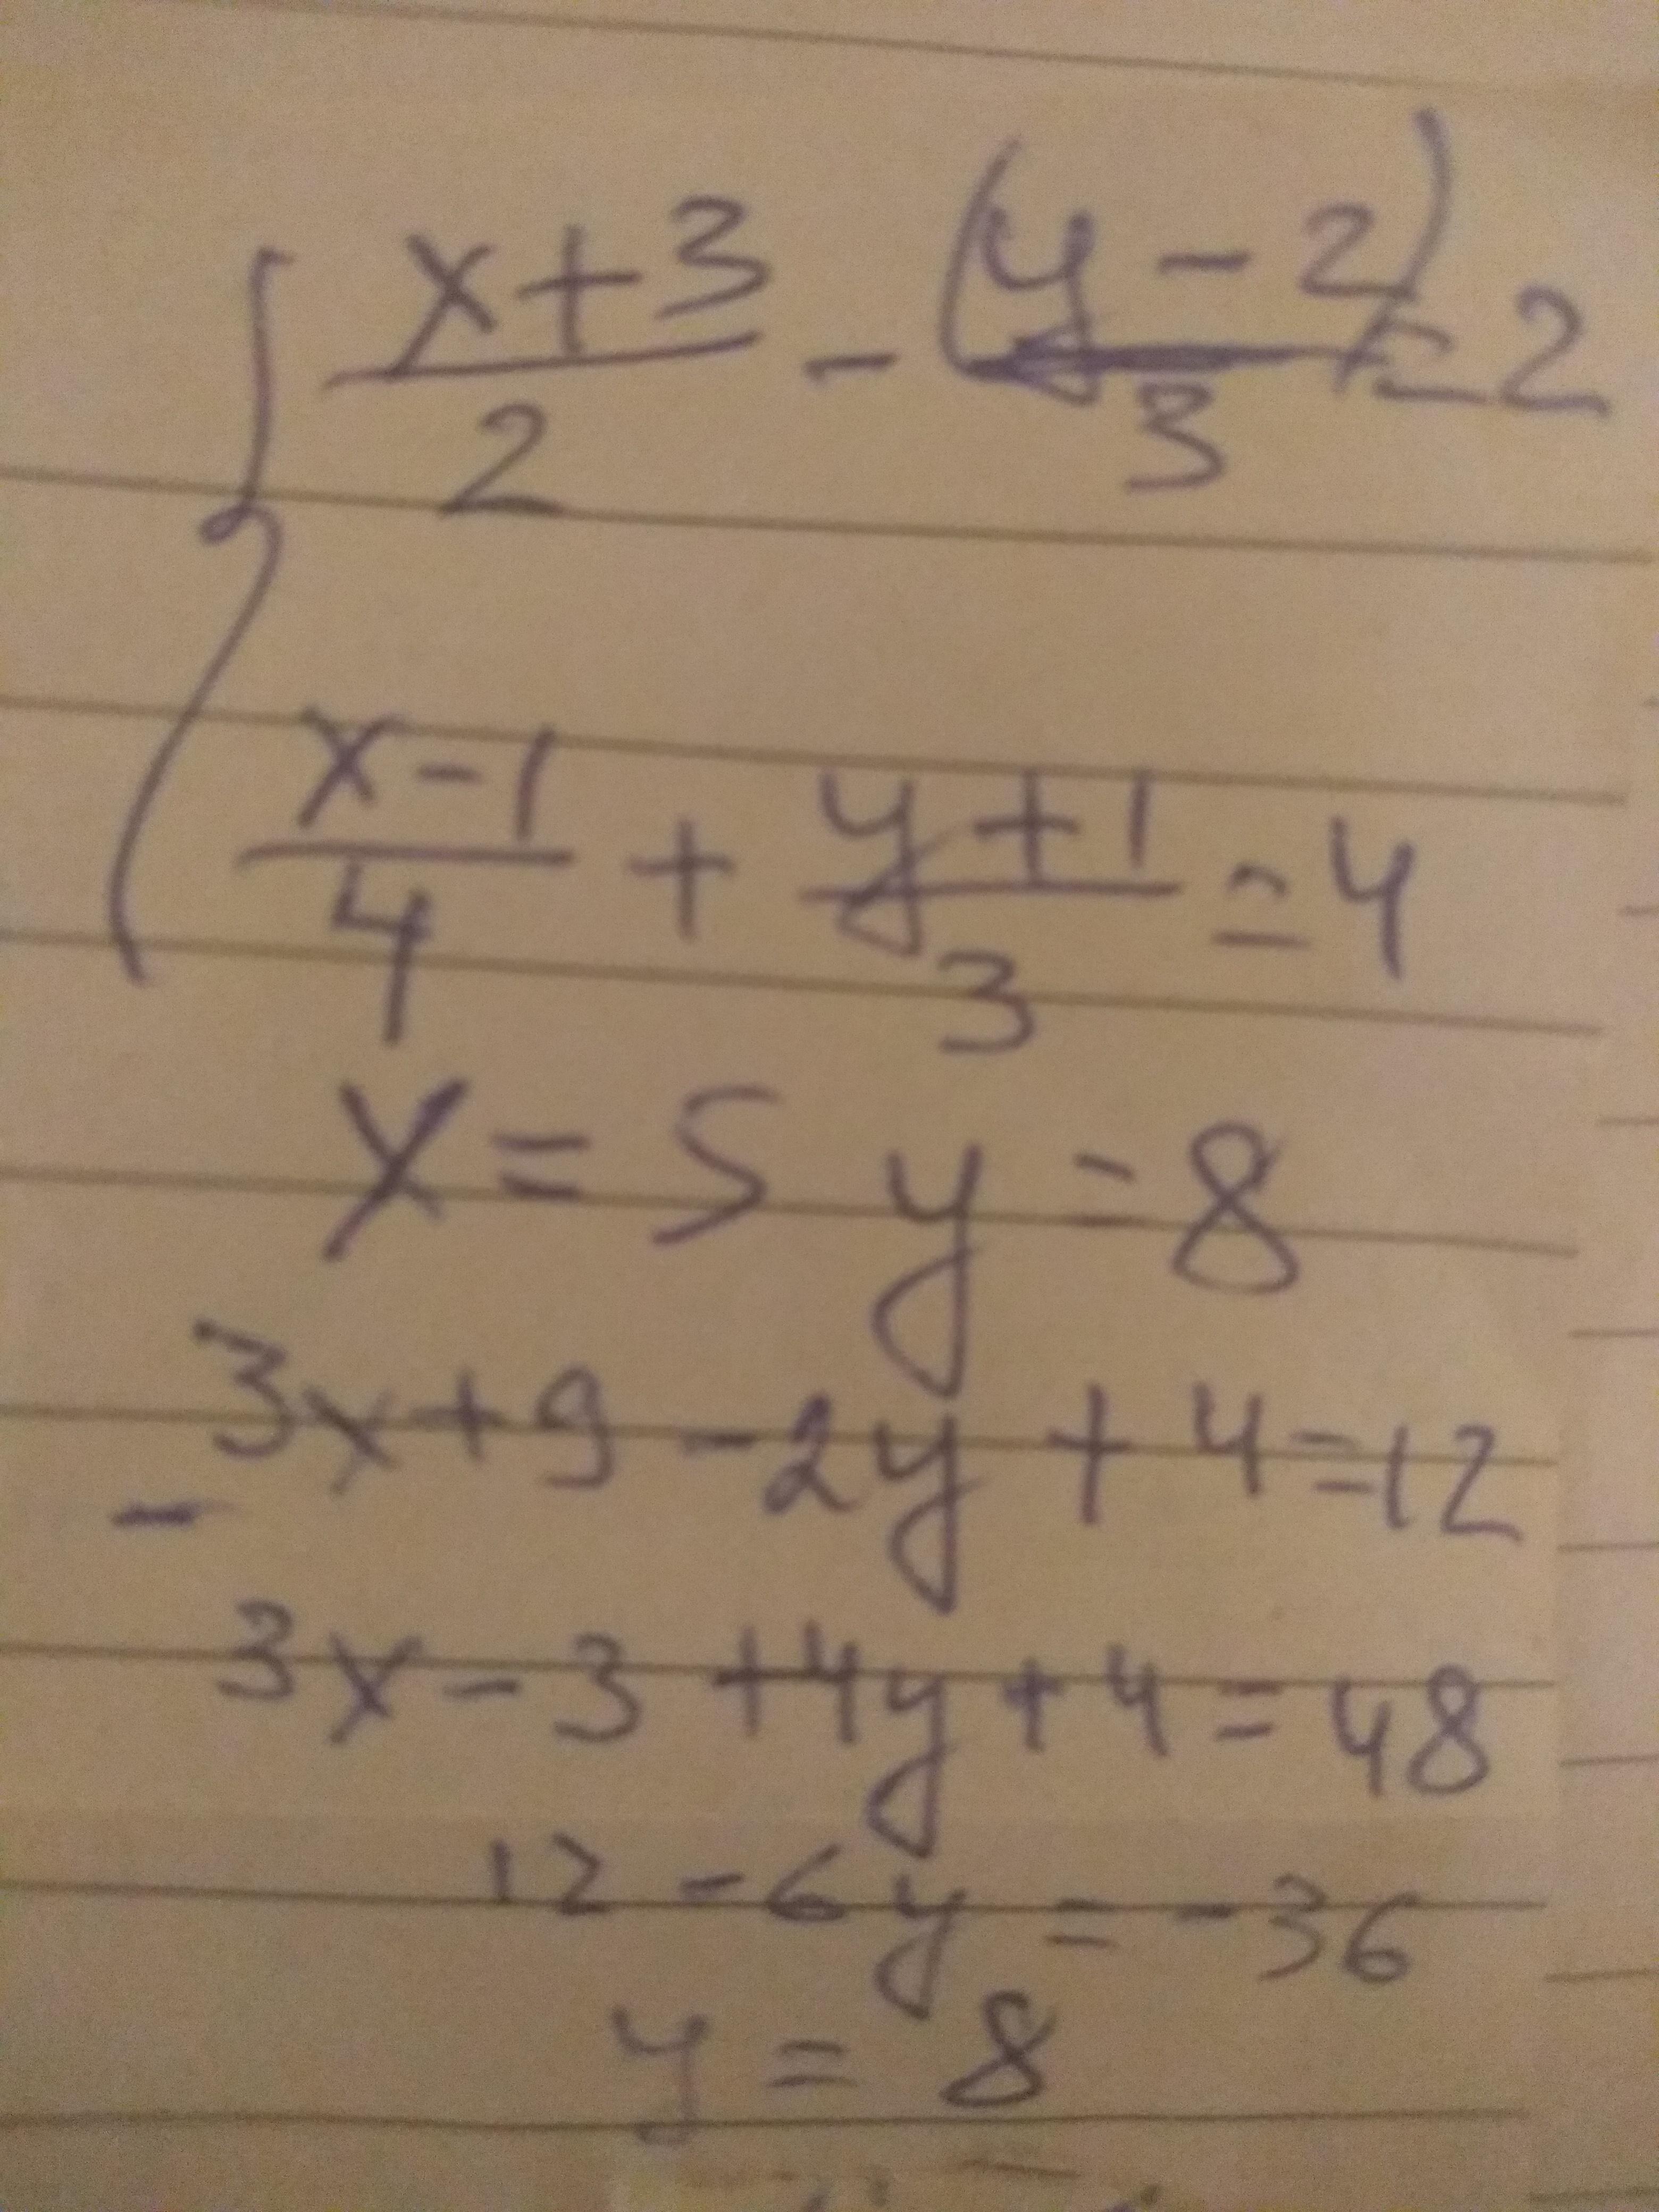 x+3/2 - (y-2)/3 = 2
x-1/4 + y+1/3 = 4
x = 5 y = 8
3x+9 -2y + 4 = 12
-
3x - 3 +4y + 4 = 48
12 - 6y = -36
y = 8